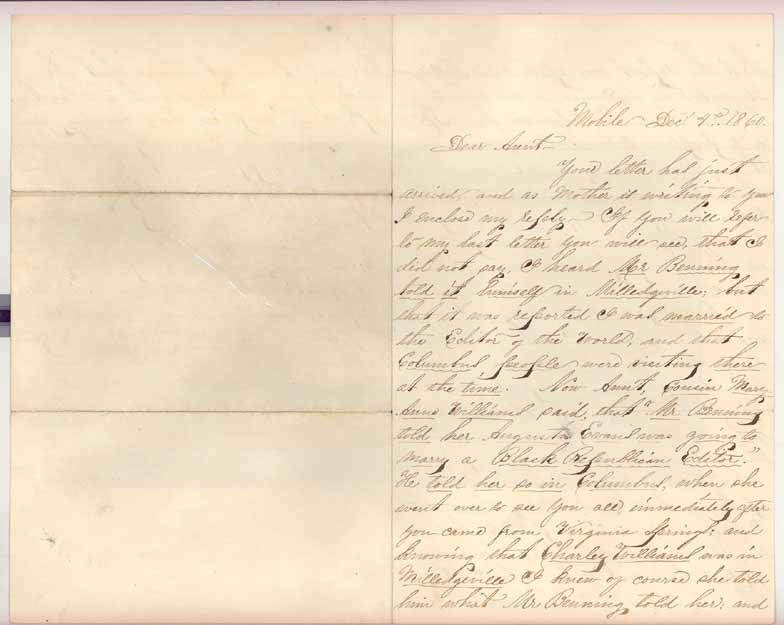 Mobile Dec 4th 1860.
Dear Aunt
Your letter has just
arrived, and as Mother is writing to you
I enclose my reply. If you will refer
to my last letter you will see, that I
did not say, I heard Mr Benning
told it himself in Milledgville; but
that it was reported I was married to
the Editor of the World, and that
Columbus, people were visiting there
at the time. Now Aunt, Cousin Mary
Anne Williams said, that "Mr. Benning
told her Augusta Evans was going to
marry a Black Republican Editor."
He told her so in Columbus, when she
went over to see you all, immediately after
you came from Virginia Springs; and
knowing that Charley Williams was in
Milledgeville I knew of course she told
him what Mr Benning told her; and